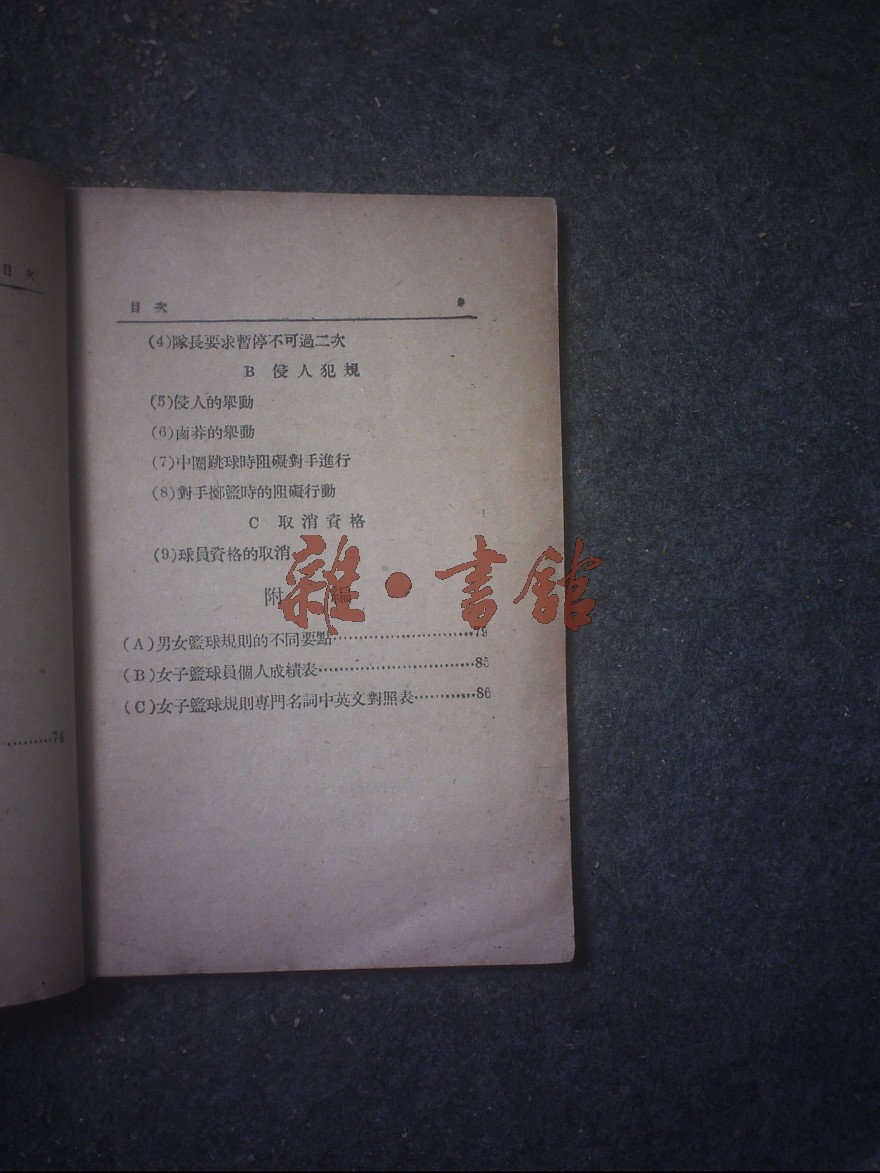 目次
74
目次 9
(4)隊長要求暫停不可過二次
B 侵人犯規
(5)侵人的舉動
(6)鹵莽的舉動
(7)中圈跳球時阻礙對手進行
(8)對手擲籃時的阻礙行動
C 取消資格
(9)球員資格的取消
附編
雜·書館
(A)男女籃球規則的不同要點……79
(B)女子籃球員個人成績表……85
(C)女子籃球規則專門名詞中英文對照表……86